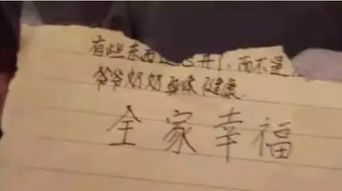 有些东西是忘不了，而不是
爷爷奶奶身体健康
全家幸福